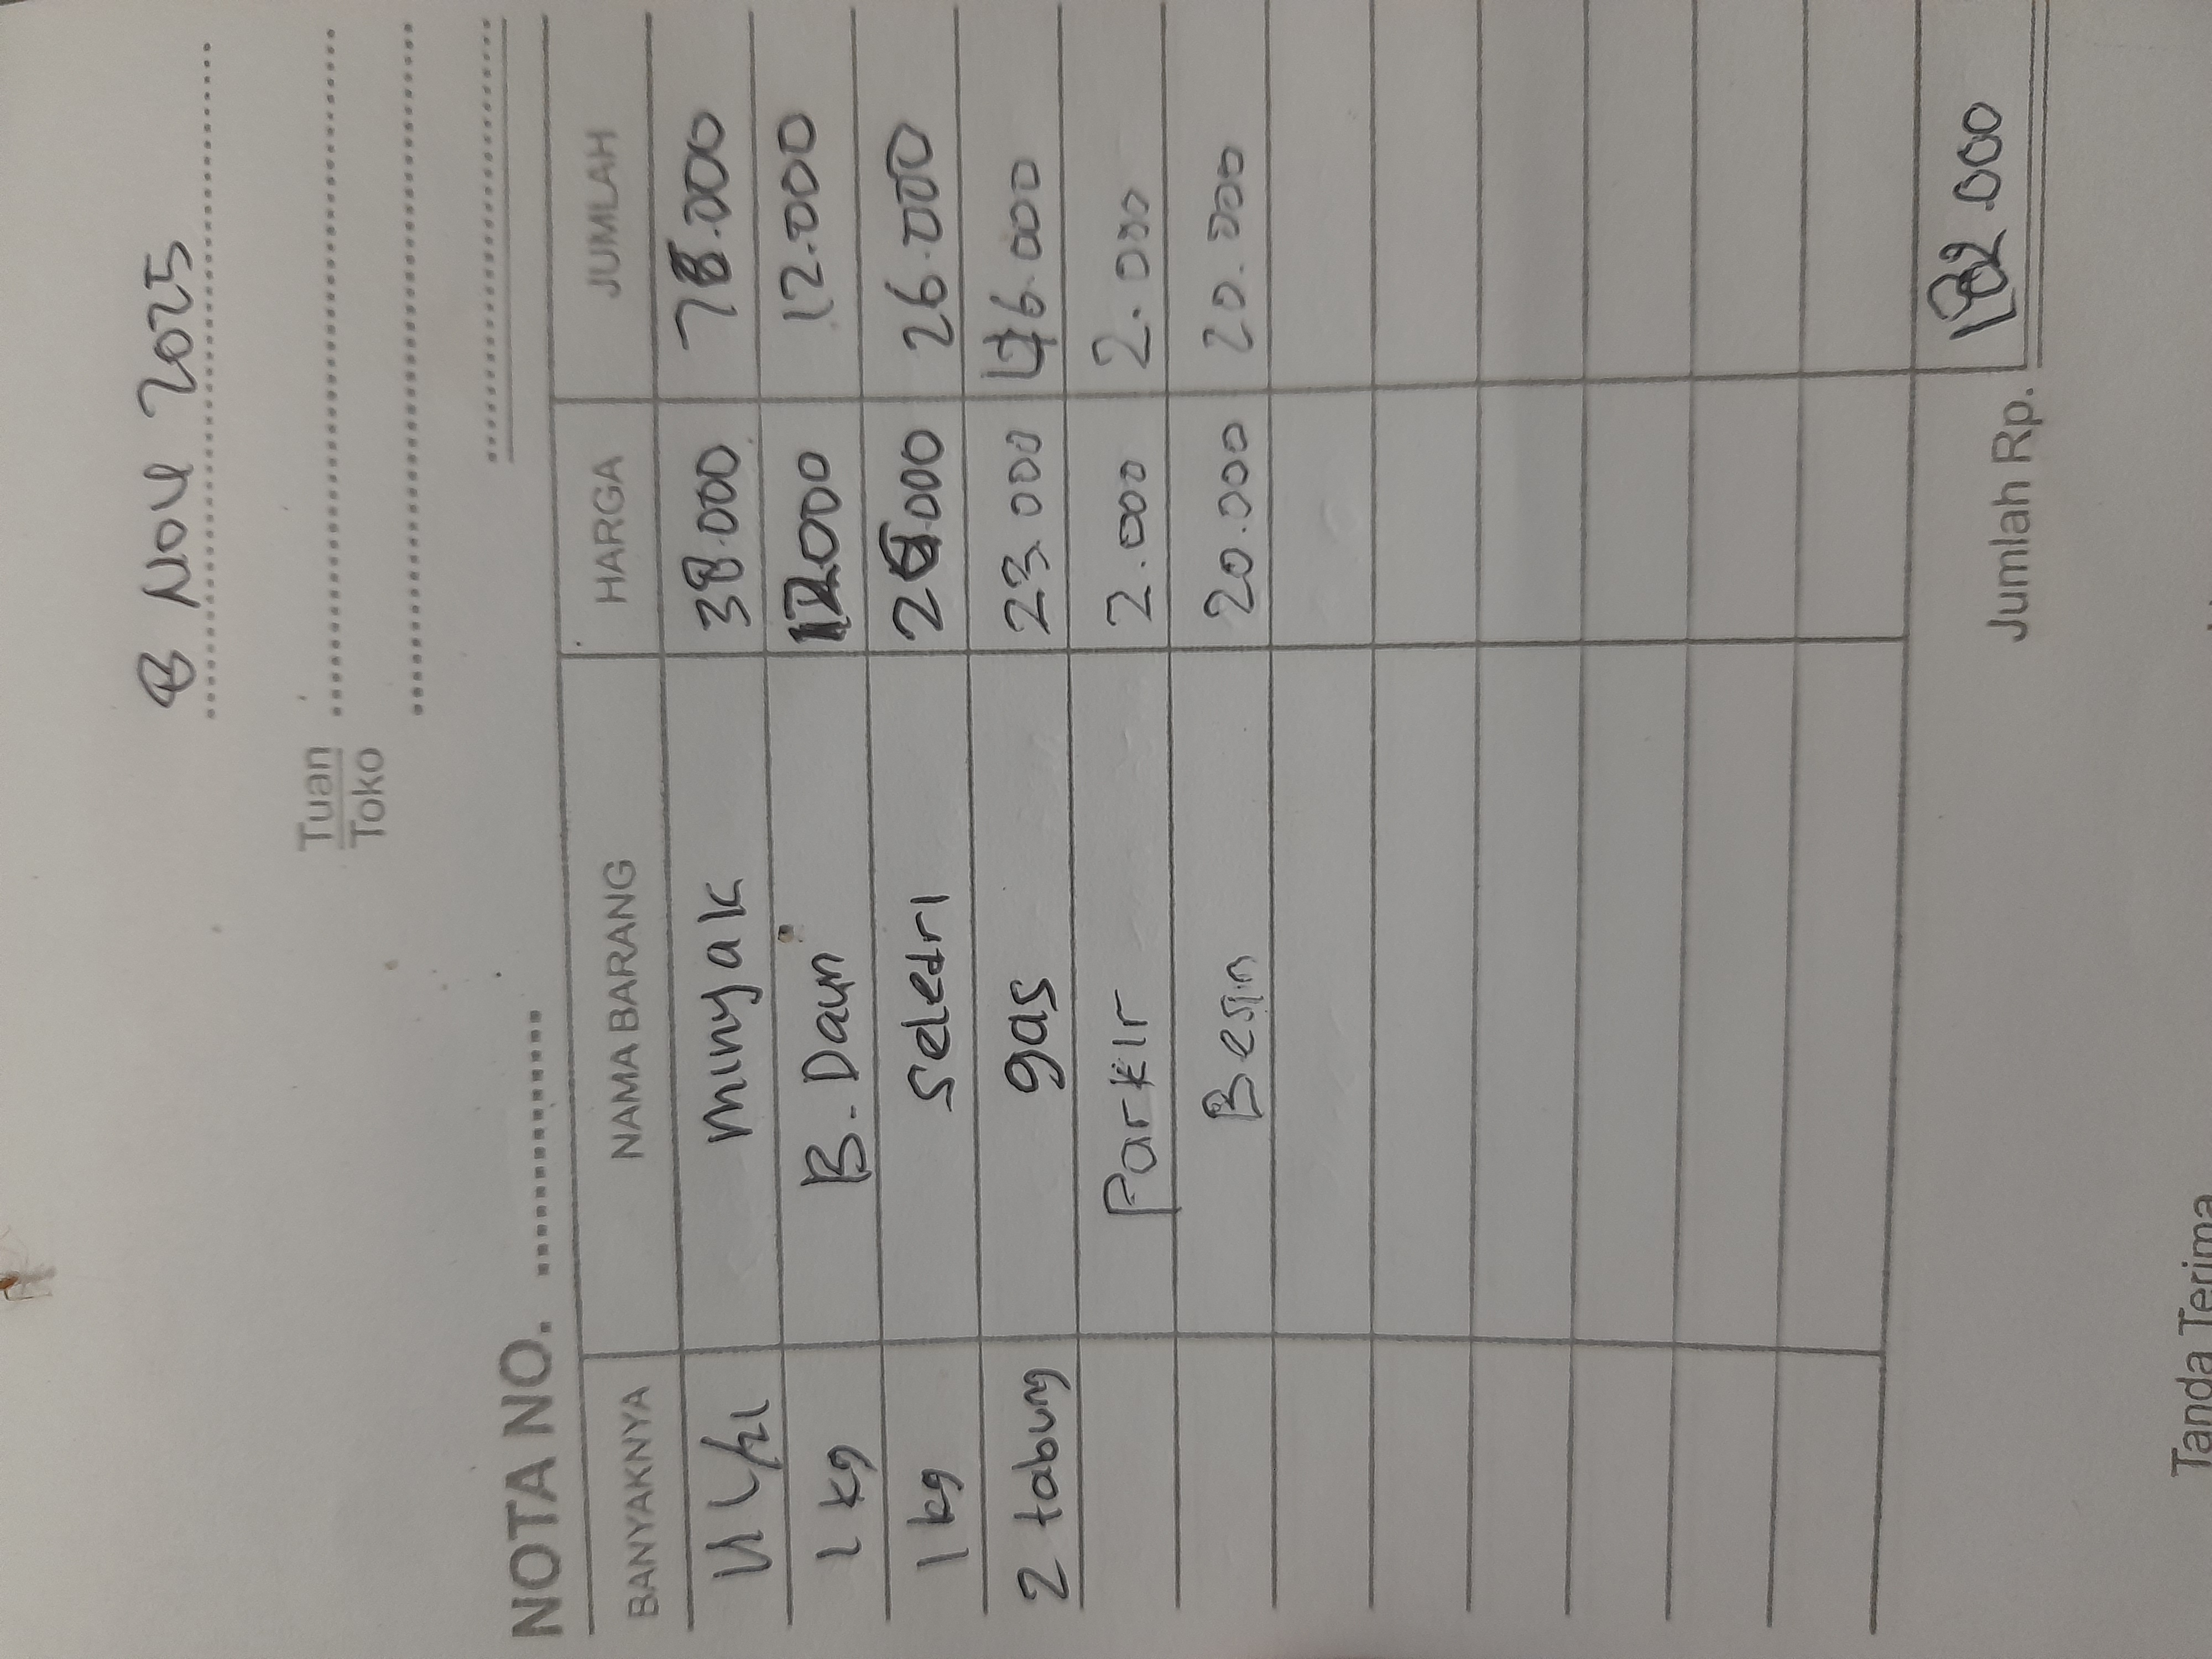 8 Nov 2025
Tuan
Toko
NOTA NO.
BANYAKNYA NAMA BARANG HARGA JUMLAH
minyak 38.000 .000
1 kg B. Daun 12000 12.000
1 kg Seledri 26.000 26.000
2 tabung gas 23.000 46.000
Parkir 2.000 2.000
Besin 20.000 20.000
Jumlah Rp. .000
Tanda Terima